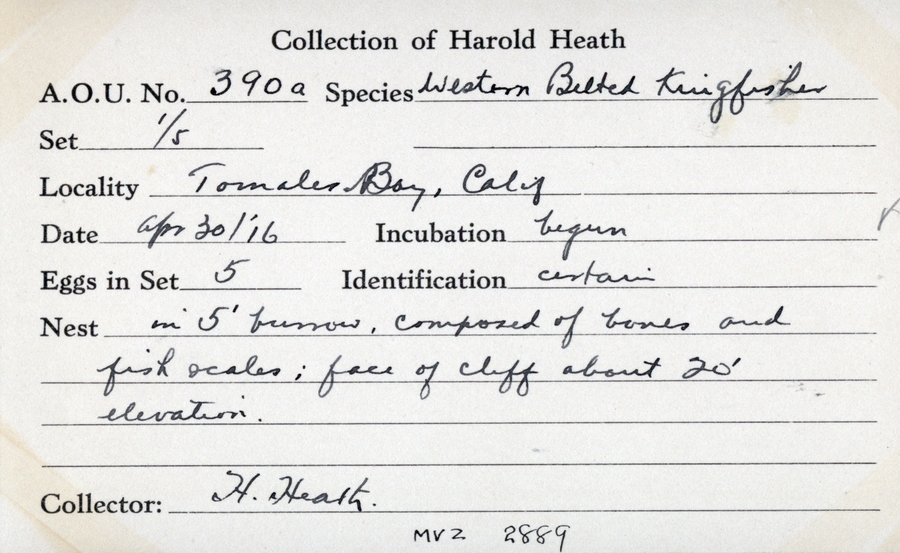 Collection of Harold Heath
A.O.U. No. 390a Species Western Belted Kingfisher
Set 1/5
Locality Tomales Bay, Calif
Date Apr 30/'16 Incubation begun
Eggs in Set 5 Identification certain
Nest in 5' burrow, composed of bones and
fish scales; face of cliff about 20'
elevation.
Collector: H. Heath.
MVZ 2889